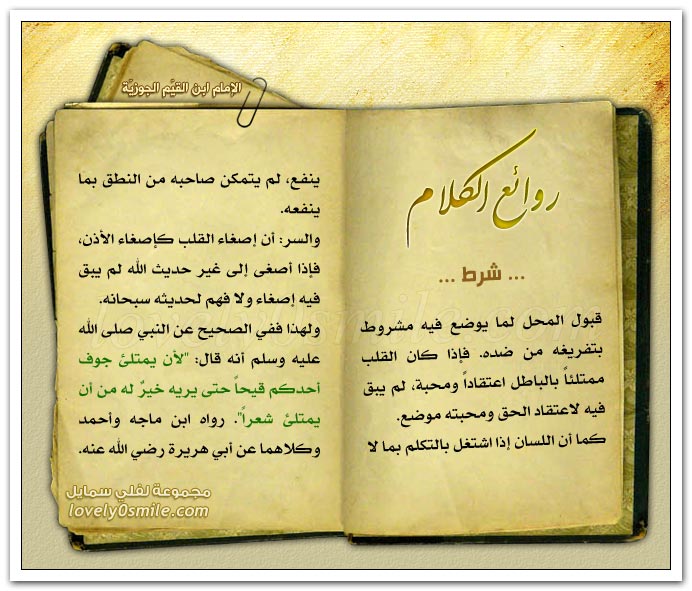 الإمام ابن القيّم الجوزيّة
روائع الكلام
... شرط ...
قبول المحل لما يوضع فيه مشروط
بتفريغه من ضده. فإذا كان القلب
ممتلئاً بالباطل اعتقاداً ومحبة، لم يبق
فيه لاعتقاد الحق ومحبته موضع.
كما أن اللسان إذا اشتغل بالتكلم بما لا
ينفع، لم يتمكن صاحبه من النطق بما
ينفعه.
والسر: أن إصغاء القلب كإصغاء الأذن،
فإذا أصغى إلى غير حديث الله لم يبق
فيه إصغاء ولا فهم لحديثه سبحانه.
ولهذا ففي الصحيح عن النبي صلى الله
عليه وسلم أنه قال: "لأن يمتلئ جوف
أحدكم قيحاً حتى يريه خيرٌ له من أن
يمتلئ شعراً". رواه ابن ماجه وأحمد
وكلاهما عن أبي هريرة رضي الله عنه.
مجموعة لفلي سمايل
lovely0smile.com
lovely0smile.com